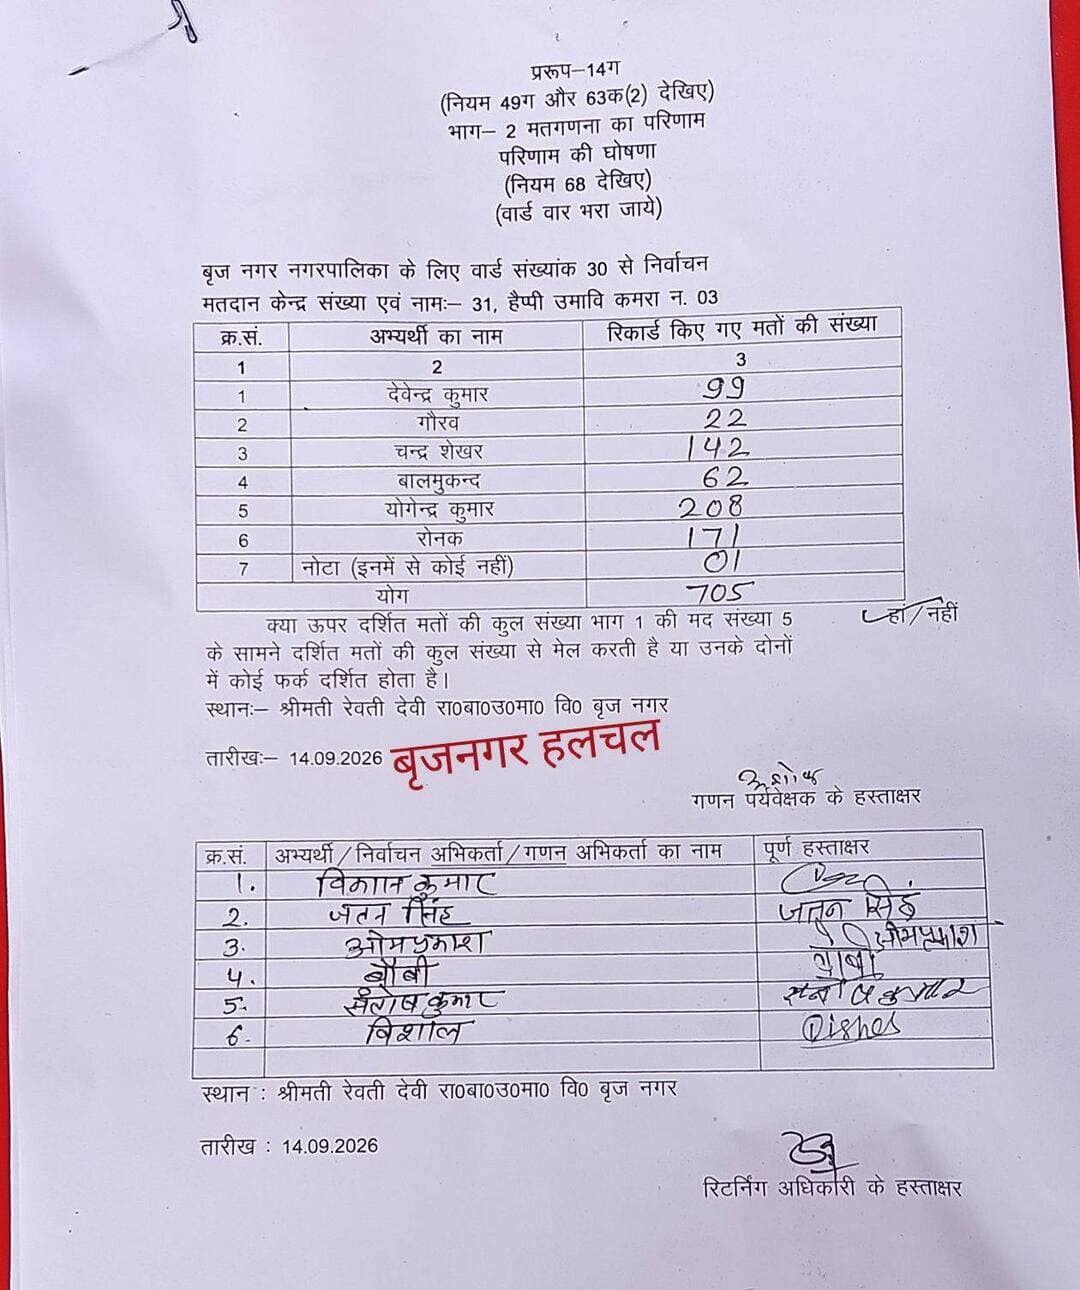 प्ररूप–14ग
(नियम 49ग और 63क(2) देखिए)
भाग– 2 मतगणना का परिणाम
परिणाम की घोषणा
(नियम 68 देखिए)
(वार्ड वार भरा जाये)
बृज नगर नगरपालिका के लिए वार्ड संख्यांक 30 से निर्वाचन
मतदान केन्द्र संख्या एवं नामः– 31, हैप्पी उमावि कमरा न. 03
क्र.सं. अभ्यर्थी का नाम रिकार्ड किए गए मतों की संख्या
1 2 3
1 देवेन्द्र कुमार 99
2 गौरव 22
3 चन्द्र शेखर 142
4 बालमुकन्द 62
5 योगेन्द्र कुमार 208
6 रोनक 171
7 नोटा (इनमें से कोई नहीं) 01
योग 705
क्या ऊपर दर्शित मतों की कुल संख्या भाग 1 की मद संख्या 5 हां/नहीं
के सामने दर्शित मतों की कुल संख्या से मेल करती है या उनके दोनों
में कोई फर्क दर्शित होता है।
स्थानः– श्रीमती रेवती देवी रा0बा0उ0मा0 वि0 बृज नगर
तारीखः– 14.09.2026 बृजनगर हलचल
अशोक
गणन पर्यवेक्षक के हस्ताक्षर
क्र.सं. अभ्यर्थी/निर्वाचन अभिकर्ता/गणन अभिकर्ता का नाम पूर्ण हस्ताक्षर
1. कुमार
2. जतन सिंह जतन सिंह
3. ओमप्रकाश ओमप्रकाश
4. बौबी
5. संतोष कुमार कुमार
6. विशाल
स्थान : श्रीमती रेवती देवी रा0बा0उ0मा0 वि0 बृज नगर
तारीख : 14.09.2026
रिटर्निंग अधिकारी के हस्ताक्षर